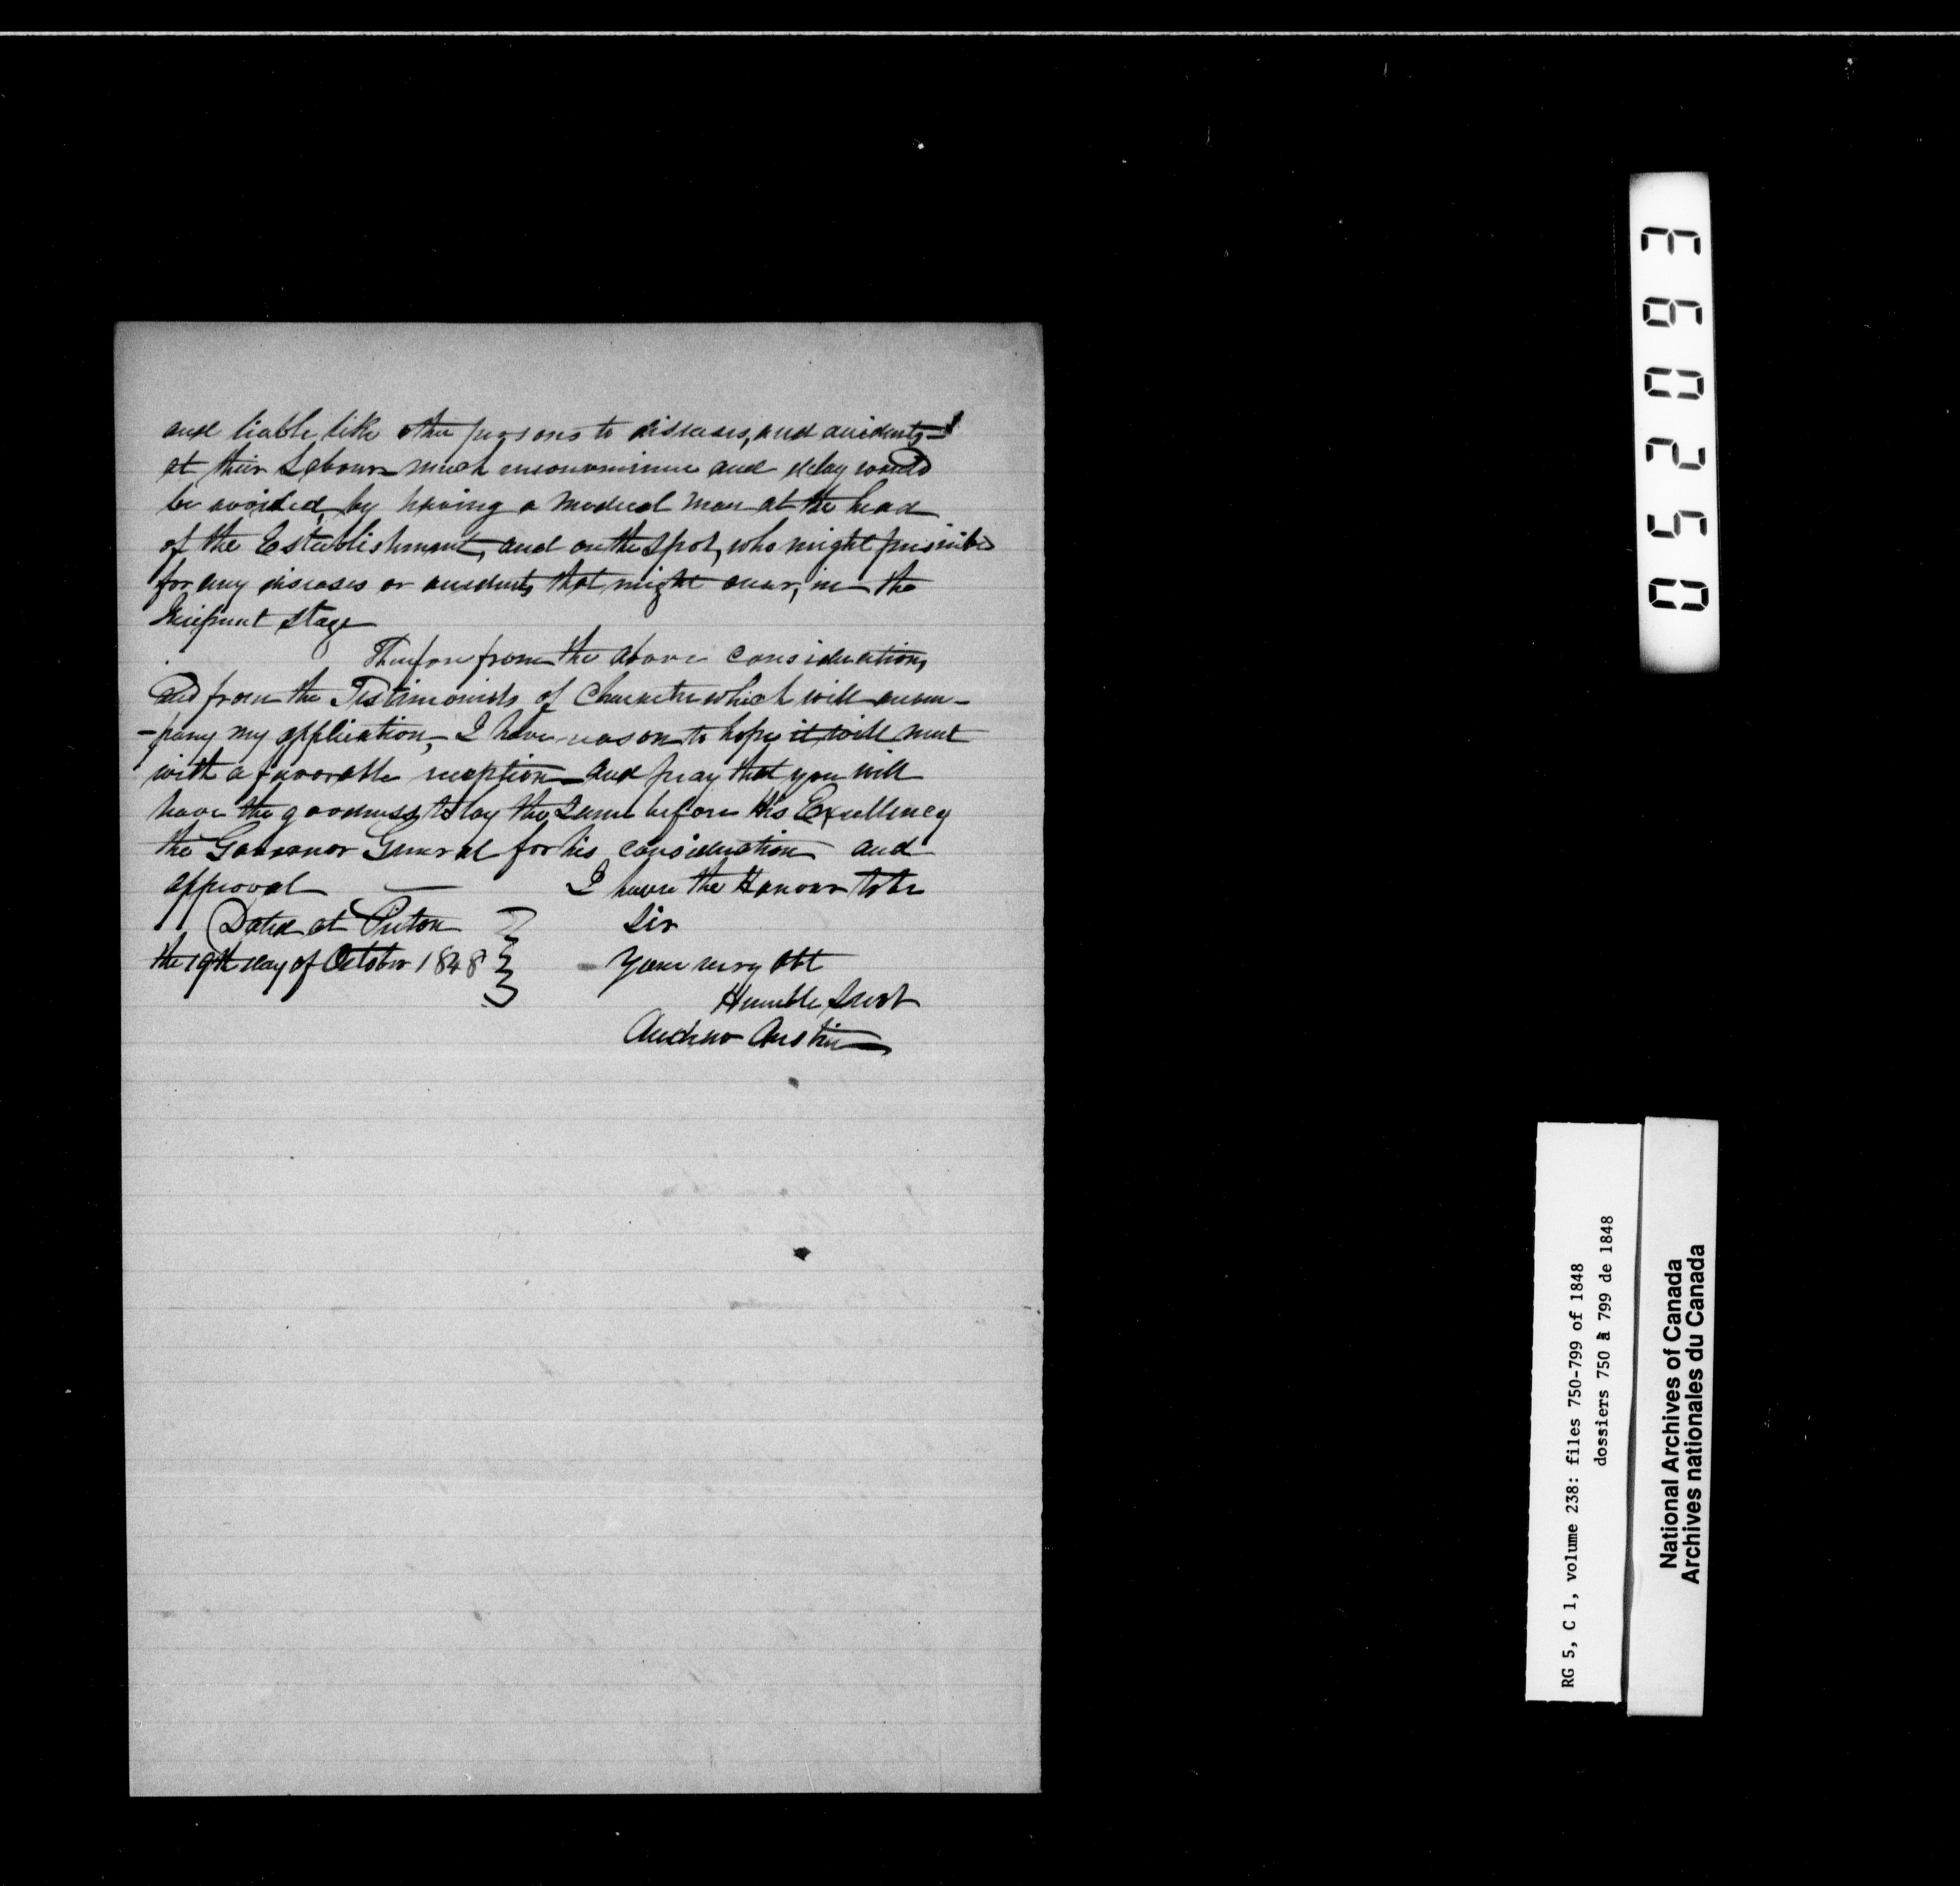 and liable like other persons to diseases, and accidents
at their Labour much inconvenience and delay would
be avoided, by having a Medical Man at the head
of the Establishment, and on the Spot, who might prescribe
for any diseases or accidents that might occur, in the
Incipient Stage
Therefore from the above considerations,
and from the Testimonials of Character which will accom-
-pany my application, I have reason to hope it will meet
with a favorable reception and pray that you will
have the goodness to lay the Same before His Excellency
the Governor General for his consideration and
approval — I have the Honour to be
Dated at Picton Sir
the 19th day of October 1848 Your very obt
Humble Servt
Andrew Austin
052093
RG 5, C 1, volume 238: files 750-799 of 1848
dossiers 750 à 799 de 1848
National Archives of Canada
Archives nationales du Canada